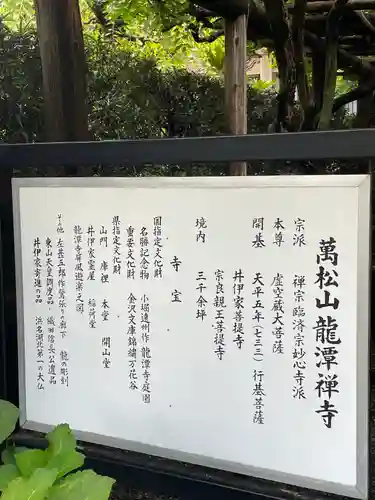 萬松山龍潭禅寺
宗派　禅宗臨済宗妙心寺派
本尊　虚空蔵大菩薩
開基　天平五年(七三三)行基菩薩
井伊家菩提寺
宗良親王菩提寺
境内　三千余坪
寺宝
国指定文化財
名勝記念物　小堀遠州作　龍潭寺庭園
重要文化財　金沢文庫錦繍万花谷
県指定文化財
山門　庫裡　本堂　開山堂
井伊家霊屋　稲荷堂
龍潭寺屏風遊楽之図
その他　左甚五郎作鶯張りの廊下　龍の彫刻
東山天皇調度品・織田信長公遺品
井伊家寄進の品　浜名湖北第一の大仏